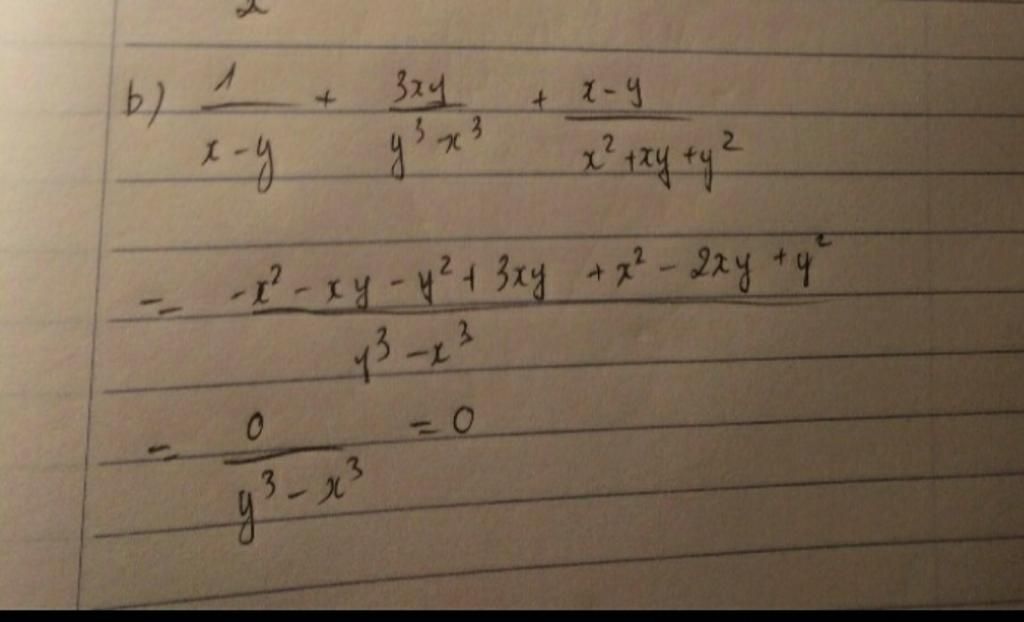 b) 1/(x-y) + 3xy/(y³-x³) + (x-y)/(x²+xy+y²)
= (-x²-xy-y²+3xy+x²-2xy+y²)/(y³-x³)
= 0/(y³-x³) = 0